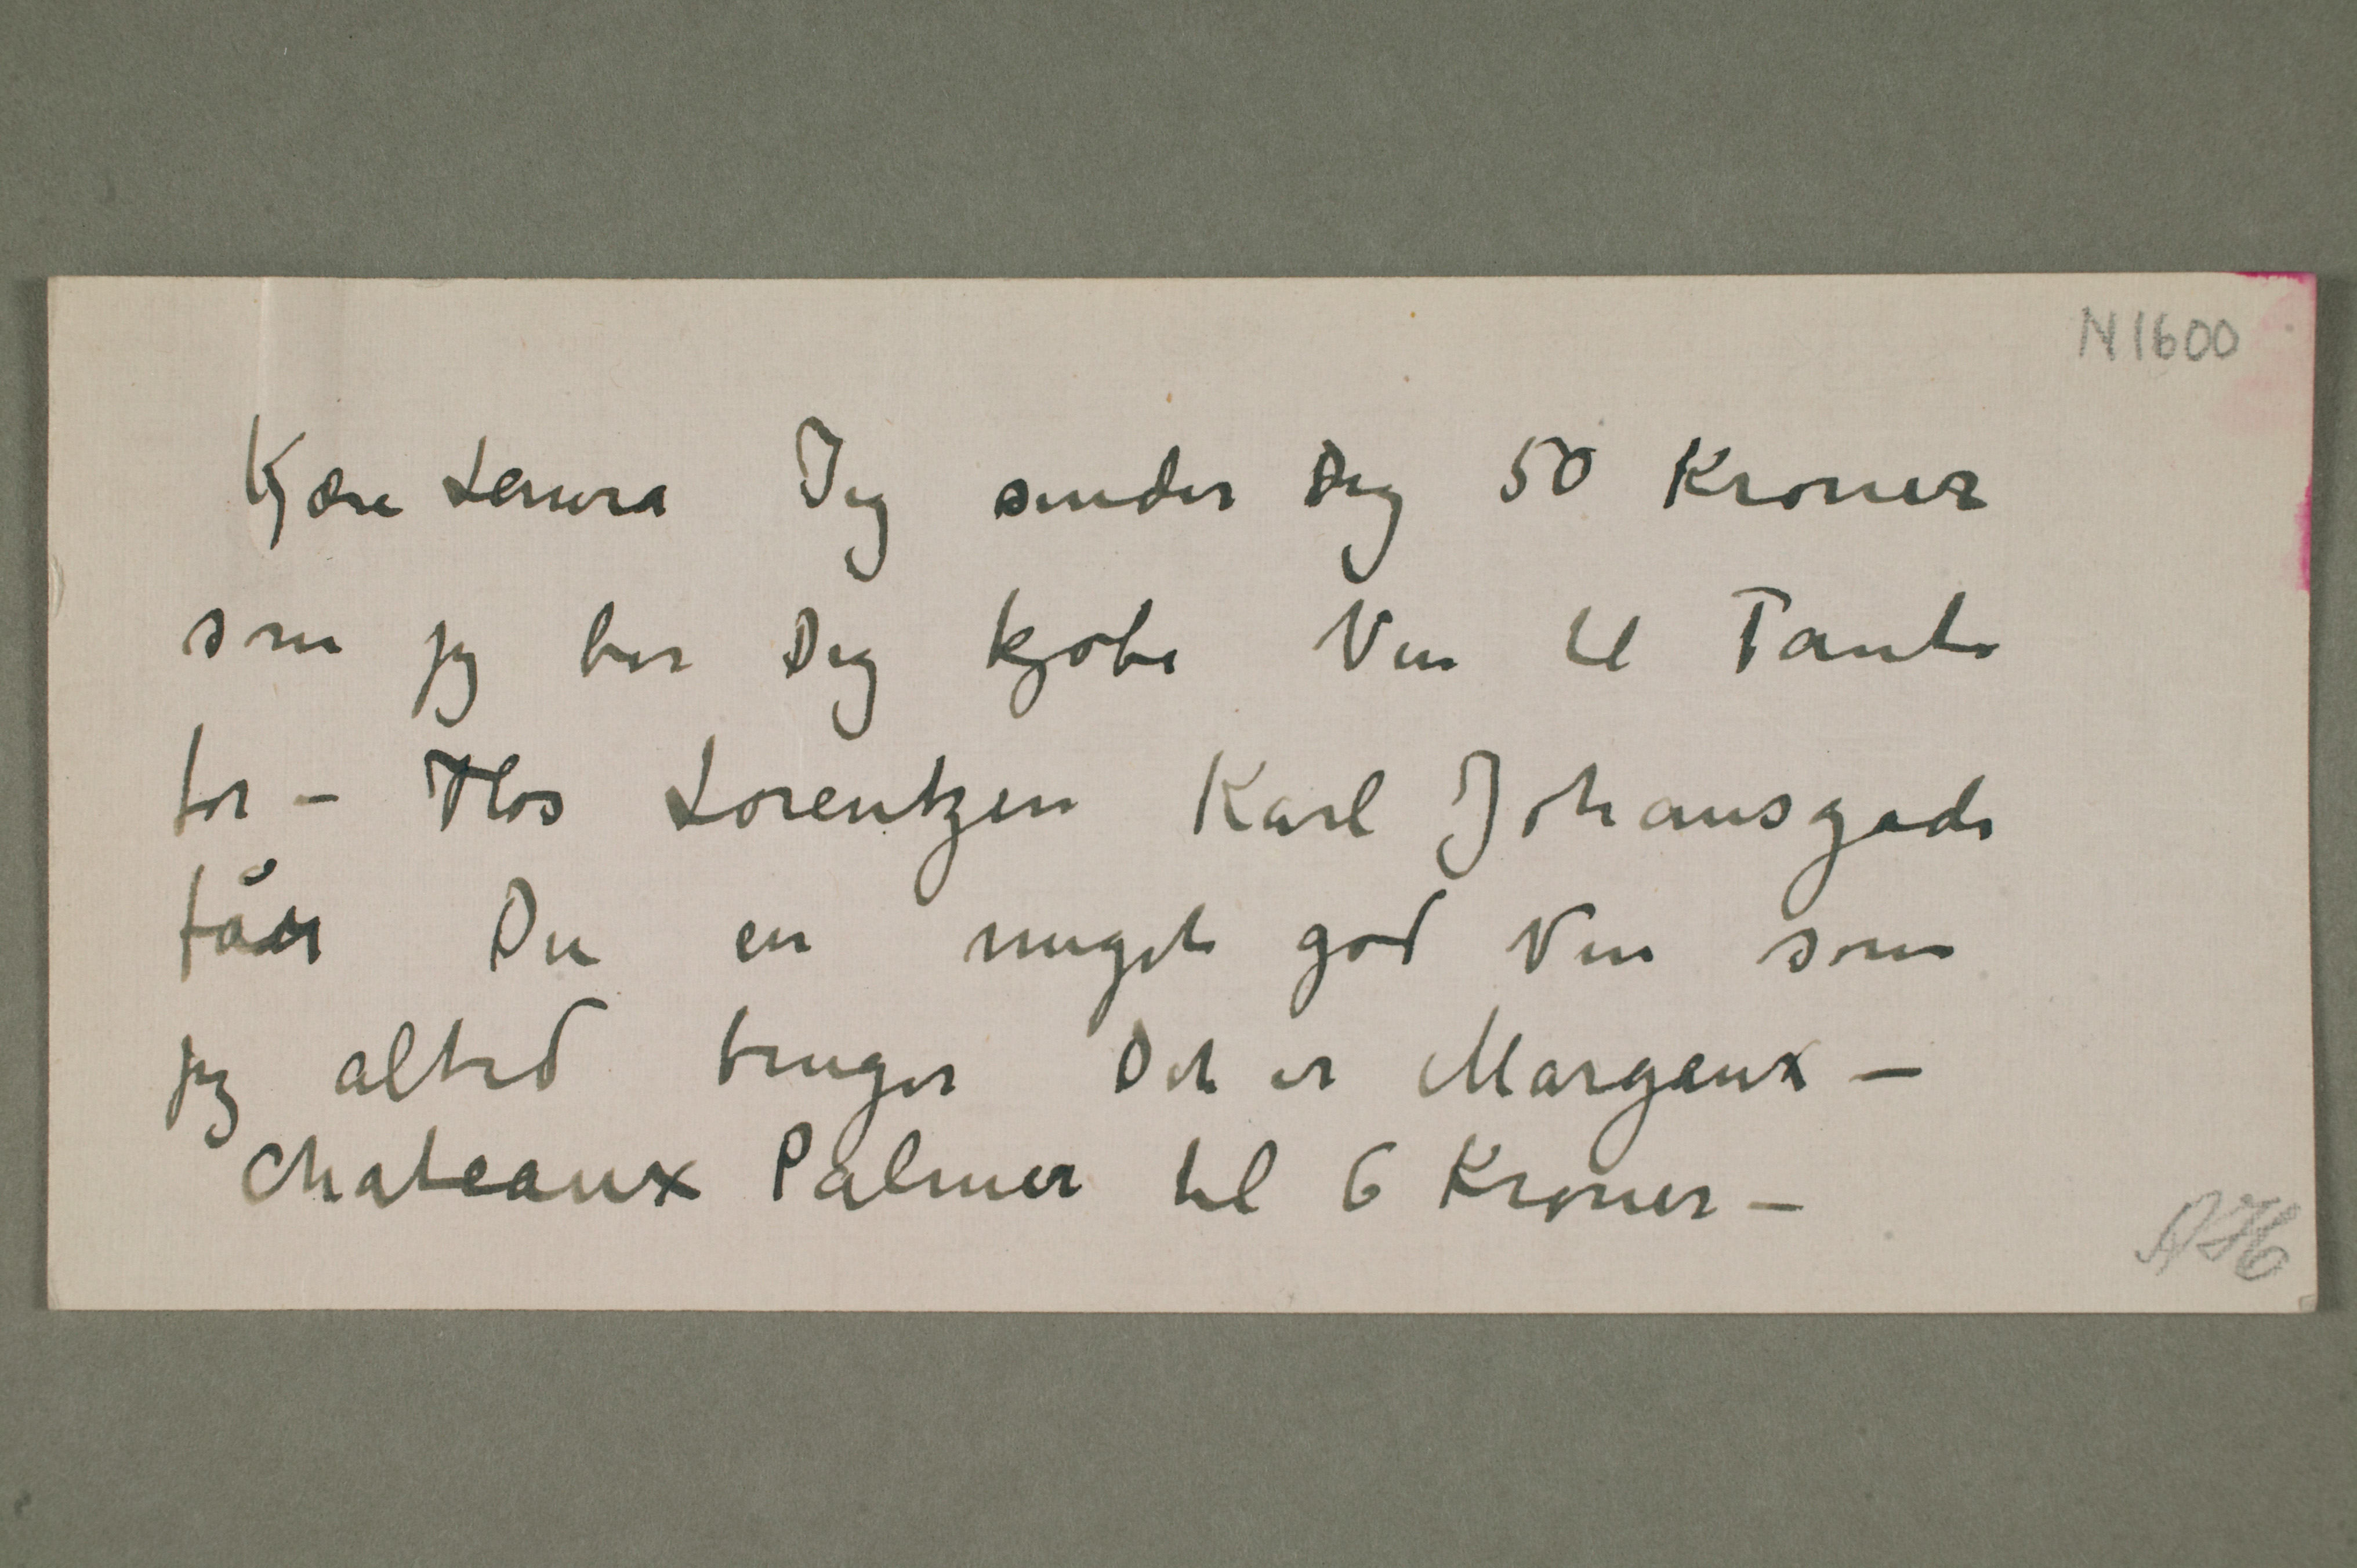 N 1600
Kjære Laura Jeg sender Dig 50 Kroner
som jeg ber Dig kjøbe Vin til Tante
for – Hos Lorentzen Karl Johansgade
får Du en meget god Vin som
jeg altid bruger Det er Margaux –
Chateaux Palmer til 6 Kroner –